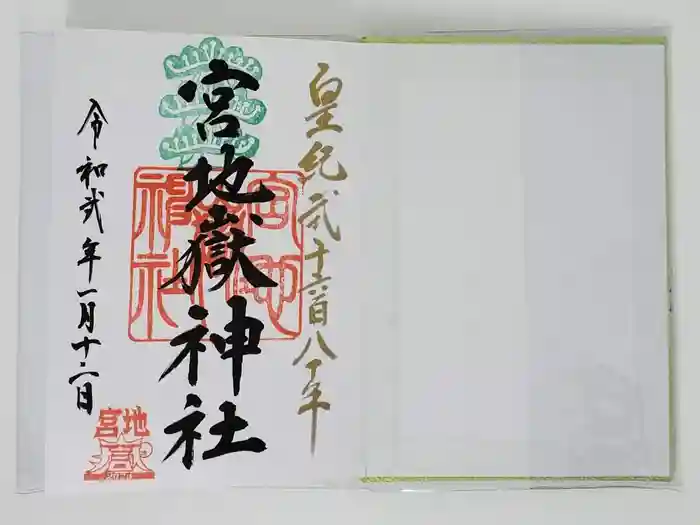 皇紀弐千六百八十年
宮地嶽神社
令和弐年一月十二日
宮地